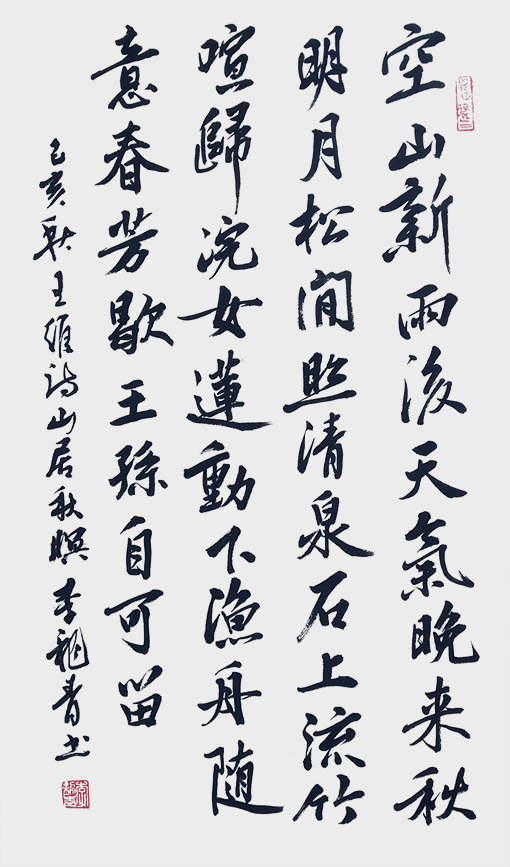 空山新雨後天氣晚来秋
明月松间照清泉石上流竹
喧歸浣女蓮動下漁舟随
意春芳歇王孫自可留
己亥秋王維詩山居秋暝李龍青书